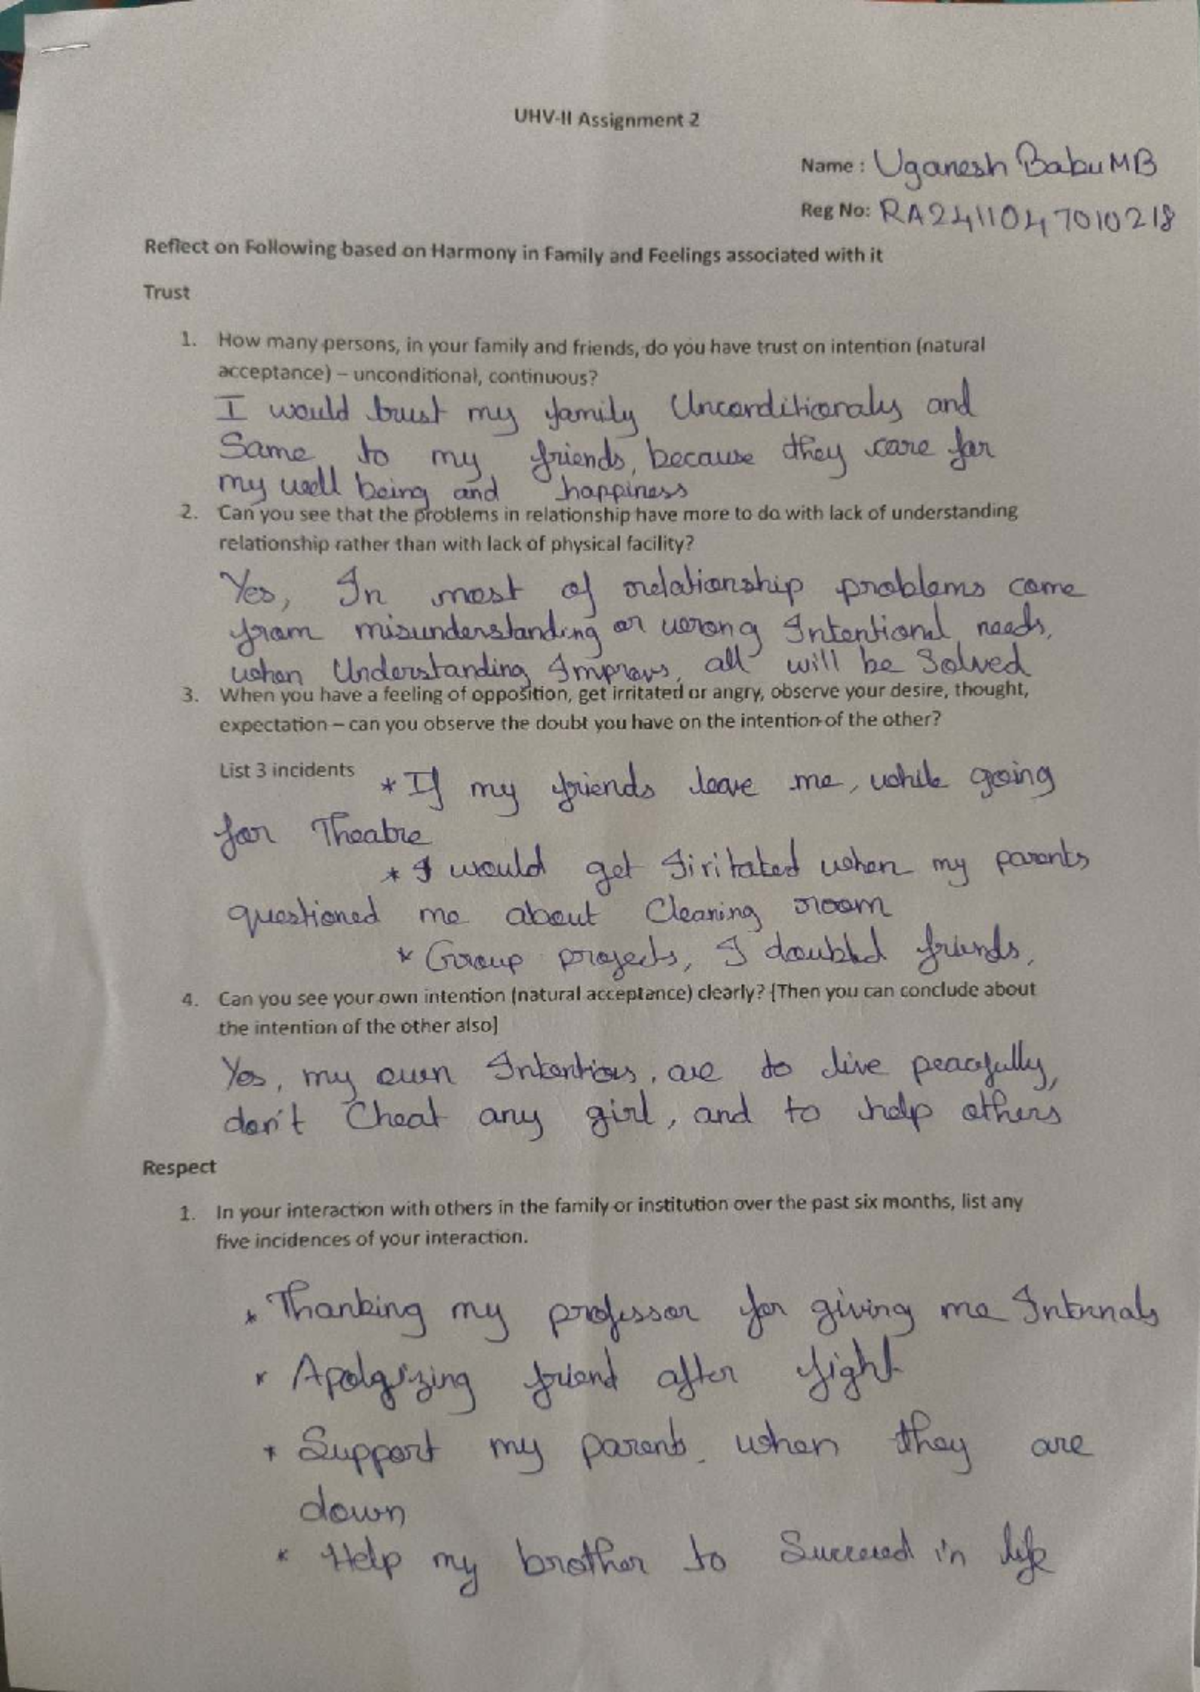 UHV-II Assignment 2
Name : Uganesh Babu MB
Reg No: RA2411047010218
Reflect on Following based on Harmony in Family and Feelings associated with it
Trust
1. How many persons, in your family and friends, do you have trust on intention (natural
acceptance) – unconditional, continuous?
I would trust my family Unconditionaly and
Same to my friends, because they care for
my well being and happiness
2. Can you see that the problems in relationship have more to do with lack of understanding
relationship rather than with lack of physical facility?
Yes, In most of relationship problems come
from misunderstanding or wrong Intentional needs,
when Understanding Improvs, all will be Solved
3. When you have a feeling of opposition, get irritated or angry, observe your desire, thought,
expectation – can you observe the doubt you have on the intention of the other?
List 3 incidents * If my friends leave me, while going
for Theatre
* I would get Iiritated when my parents
questioned me about Cleaning room
* Group projects, I doubted friends,
4. Can you see your own intention (natural acceptance) clearly? [Then you can conclude about
the intention of the other also]
Yes, my own Intentions, are to live peacefully,
don't Cheat any girl, and to help others
Respect
1. In your interaction with others in the family or institution over the past six months, list any
five incidences of your interaction.
* Thanking my professor for giving me Internals
* Apolgizing friend after fight
* Support my parents, when they are
down
* Help my brother to Succeed in life